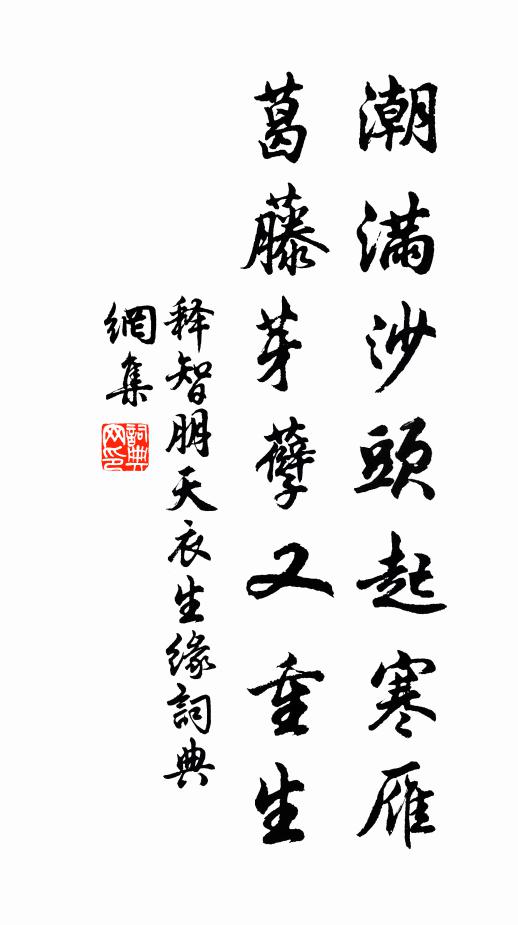 潮滿沙頭起寒雁
葛藤芽孽又重生
释智朋天衣生缘詞典
網集
詞典
网印